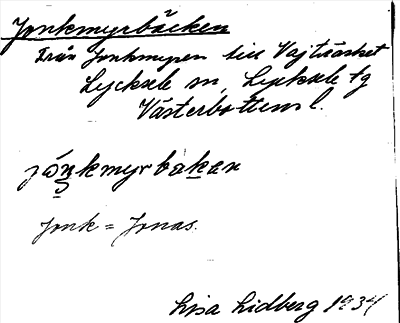 Jonkmyrbäcken
Från Jonkmyren till Vajträsket
Lycksele sn, Lycksele tg
Västerbottens l.
jón̲kmyrbak̲an
Jonk = Jonas.
Lisa Lidberg 1934